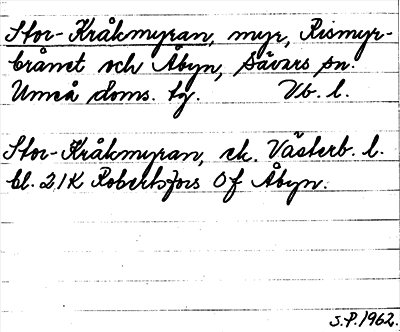 Stor-Kråkmyran, myr, Rismyr-
brånet och Åbyn, Sävars sn.
Umeå doms. tg. Vb. l.
Stor-Kråkmyran, ek. Västerb. l.
bl. 21K Robertsfors Of Åbyn.
S.P. 1962.